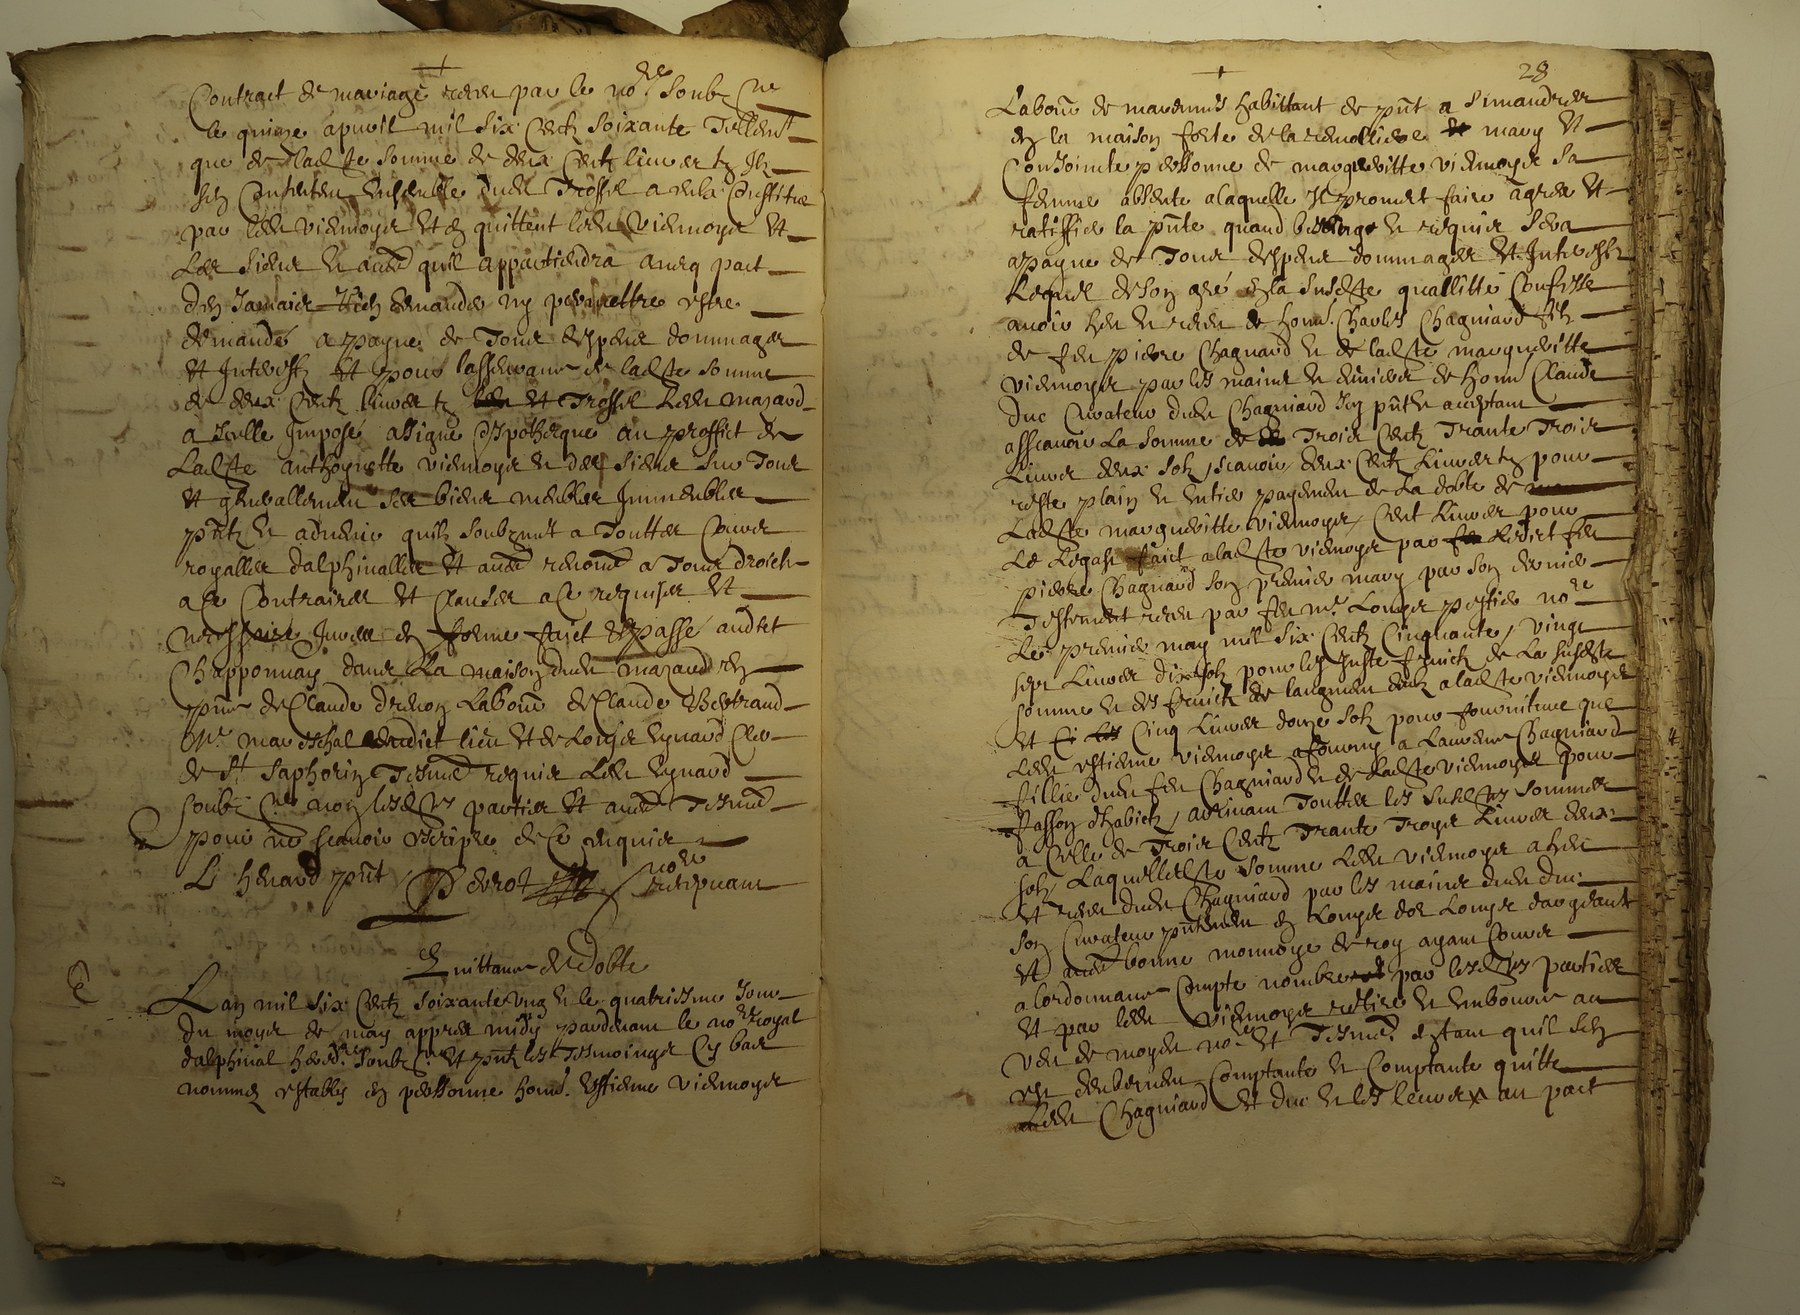 Contract de mariage receu par le no.re soubz.ne
le quinze apvril mil six centz soixante Tellem.t
que de lad.te somme de deux centz livres tz Ilz
se contentent ensemble dud Trossel
par led vidmoyer et en quittent led vidmoyer et
Les siens et aud qu'il appartiendra avecq pact
den Jamais rien demander ny permettre estre
demandé a payne de Tous despens dommages
et Interestz et pour lasseurance de lad.te somme
de deux centz livres tz et Trossel led mazard
a Icelle Imposé assigné Ispotheque au proffict de
Lad.te anthoynette vidmoyer et des siens sur Tous
et generallement ses biens meubles Immeubles
pntz et advenir quilz soubzmet a Touttes Cours
royalles dalphinalles et aud renoncé a Tous droictz
a ce Contraires et Clauses a ce requises et
necessaires Jurees en forme faict et passé audict
Chapponnay dans La maison dud mazard en
pnce de Claude drevon Labour de Claude Bertrand
m.e mareschal dudict lieu et de Louys Eynard Clerc
de S.t Saphorin Tesmoings requis led Eynard
soubz.ne non lesd.tes parties et aud Tesmoings
pour ne scavoir escripre de ce enquis
L henard pnt Perrot no.re recepvant
Quittance de dotte
Lan mil six centz soixante ung et le quatriesme Jour
du moys de may appres midy pardevant le no.re royal
dalphinal hered.re soubz.ne et pntz les Tesmoings Cy bas
nommez establis en personne hon.e Estienne vidmoyer
28
Labour de marennes habittant de pnt a Simandres
en la maison forte de la mary et
Conjoincte personne de margueritte vidmoyer sa
femme absente a laquelle Il promet faire agreer et
ratiffier la pnte quand besoing et requis sera
a payne de Tous despens dommages et Interestz
Lequel de son gré en la susd.te quallitté Confesse
avoir heu et receu de hon. Charles Chagniard filz
de feu piere Chagniard et de lad.te margueritte
vidmoyer par les mains et deniers de hon. Claude
duc Curateur dud Chagniard Icy pnt et acceptant
asscavoir La somme de Trois centz Trante Trois
Livres deux solz, scavoir deux centz Livres tz pour
reste plain et entier payement de La dotte de
Lad.te margueritte vidmoyer, cent Livres pour
Le Legat faict a lad.te vidmoyer par Ledict feu
piere Chagniard son premier mary par son dernier
Testement receu par feu m.e Louys pestier no.re
Le premier may mil six centz Cinquante, vingt
sept Livres dix solz pour les Juste fruictz de La susd.te
somme et des fruictz de laugment deubz a lad.te vidmoyer
et Cinq Livres douze solz pour fourniture que
Led estienne vidmoyer a fourny a Laurence Chagniard
fillie dud feu Chagniard et de lad.te vidmoyer pour
fasson dhabictz, arrivant Touttes les susd.tes sommes
a Celle de Trois centz Trante Troys Livres deux
solz Laquelled.te somme Led vidmoyer a heu
et receu dud Chagniard par les mains dud duc
son Curateur pntement en Louys dor Louys dargeant
et aud bonne monnoye de roy ayant Cours
a lordonnance Compté nombré par lesd.tes parties
et par led vidmoyer retiré et emboursé au
veu de moyd no.re et Tesmoings estant quil sen
est deubement Comptanté et Comptante quitte
Led Chagniard et duc et les leurs au pact